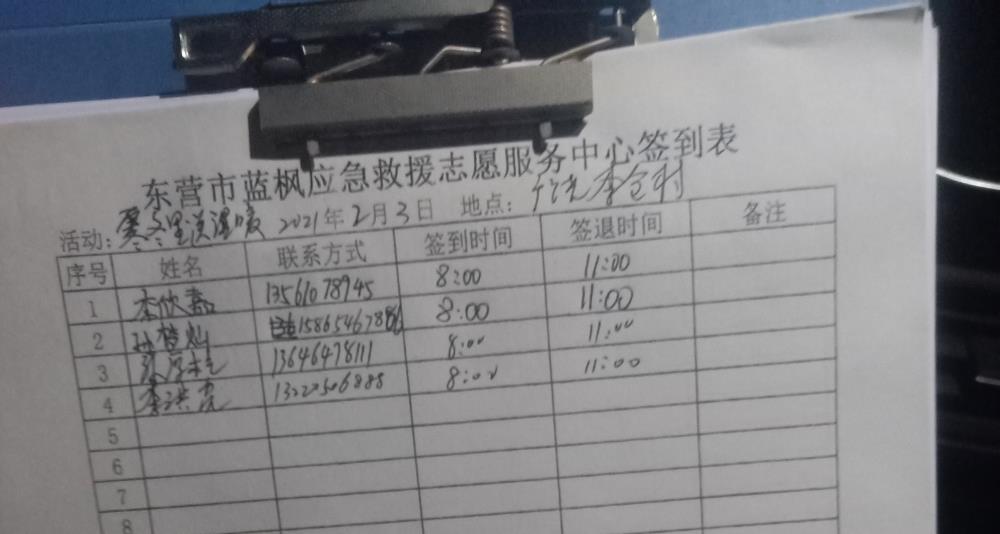 东营市蓝枫应急救援志愿服务中心签到表
活动：寒冬里送温暖 2021年2月3日 地点：李仓村
序号 姓名 联系方式 签到时间 签退时间 备注
1 李欣嘉 13561078945 8:00 11:00
2 孙梦灿 158654678 8:00 11:00
3 13646478111 8:00 11:00
4 李洪亮 13220506888 8:00 11:00
5
6
7
8